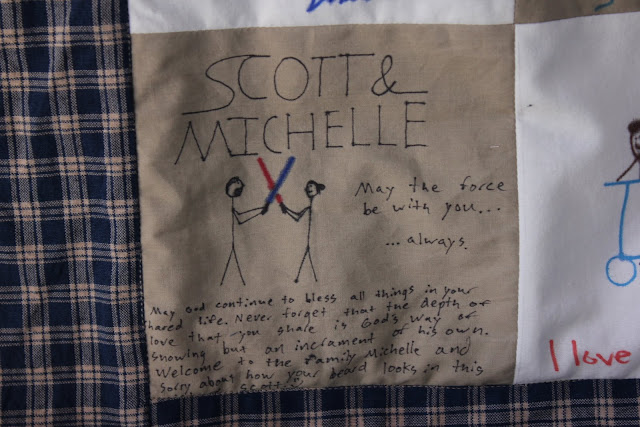 SCOTT &
MICHELLE
May the force
be with you...
...always.
May God continue to bless all things in your
shared life. Never forget that the depth of
love that you share is God's way of
showing but an incrament of his own.
Welcome to the family Michelle and
sorry about how your beard looks in this
Scott.
I love